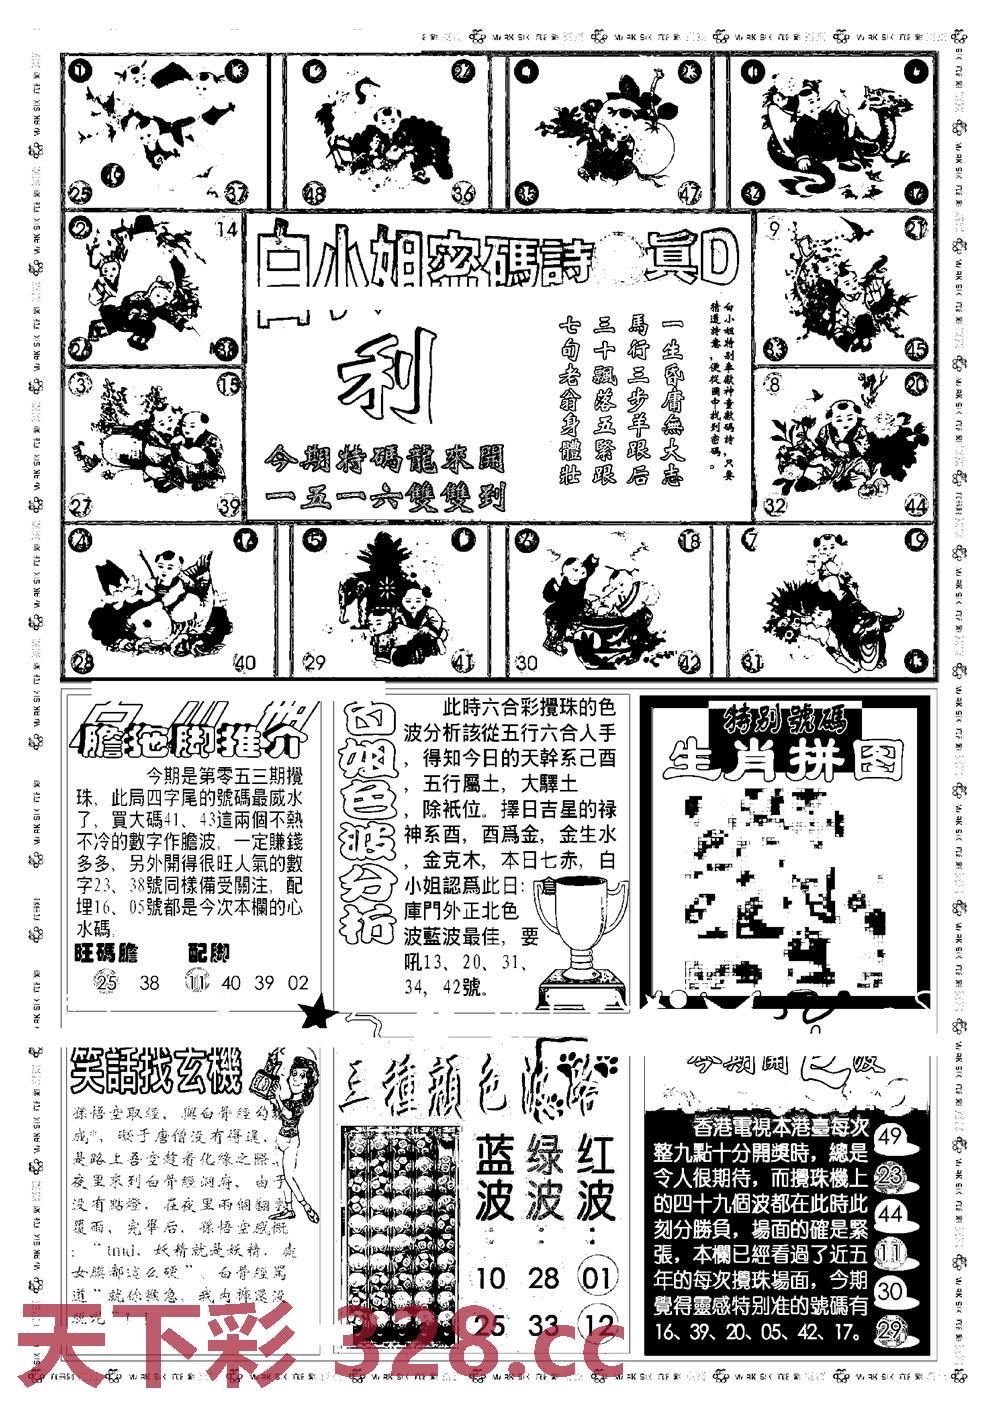 25
37
48
36
47
2
14
9
21
26
38
45
3
15
8
20
27
39
32
44
白小姐密碼詩
真D
利
今期特碼龍來開
一五一六雙雙到
白小姐特别奉獻神童數碼詩，只要
猜透詩意，便從圖中找到密碼。
一生昏庸無大志
馬行三步羊跟后
三十飄落五緊跟
七旬老翁身體壯
4
16
5
6
18
7
19
28
40
29
41
30
42
31
43
膽拖脚推介
今期是第零五三期攪
珠，此局四字尾的號碼最威水
了，買大碼41、43這兩個不熱
不冷的數字作膽波，一定賺錢
多多，另外開得很旺人氣的數
字23、38號同樣備受關注，配
埋16、05號都是今次本欄的心
水碼，
旺碼膽 配脚
25 38 11 40 39 02
白姐色波分析
此時六合彩攪珠的色
波分析該從五行六合人手
，得知今日的天幹系己酉
，五行屬土，大驛土
，除祇位。擇日吉星的禄
神系酉，酉爲金，金生水
，金克木，本日七赤，白
小姐認爲此日：倉
庫門外正北色
波藍波最佳，要
吼13、20、31、
34，42號。
特别號碼
生肖拼图
笑話找玄機
孫悟空取經，與白骨經勾
成*，礙于唐僧没有得逞、
是路上吾空趁着化緣之際、
夜里來到白骨經洞府，由于
没有點燈，在夜里兩個翻雲
覆雨、完畢后，孫悟空感慨
：“tmd，妖精就是妖精，處
女膜都這么硬”、白骨經罵
道“就你猴急，我内褲還没
脱呢”！！
三種顔色波路
蓝波：
绿波：
红波：
10 28 01
25 33 12
今期開色波
香港電視本港臺每次
整九點十分開獎時，總是
令人很期待，而攪珠機上
的四十九個波都在此時此
刻分勝負，場面的確是緊
張，本欄已經看過了近五
年的每次攪珠場面，今期
覺得靈感特别准的號碼有
16、39、20、05、42、17。
49
23
44
11
30
29
天下彩 328.cc